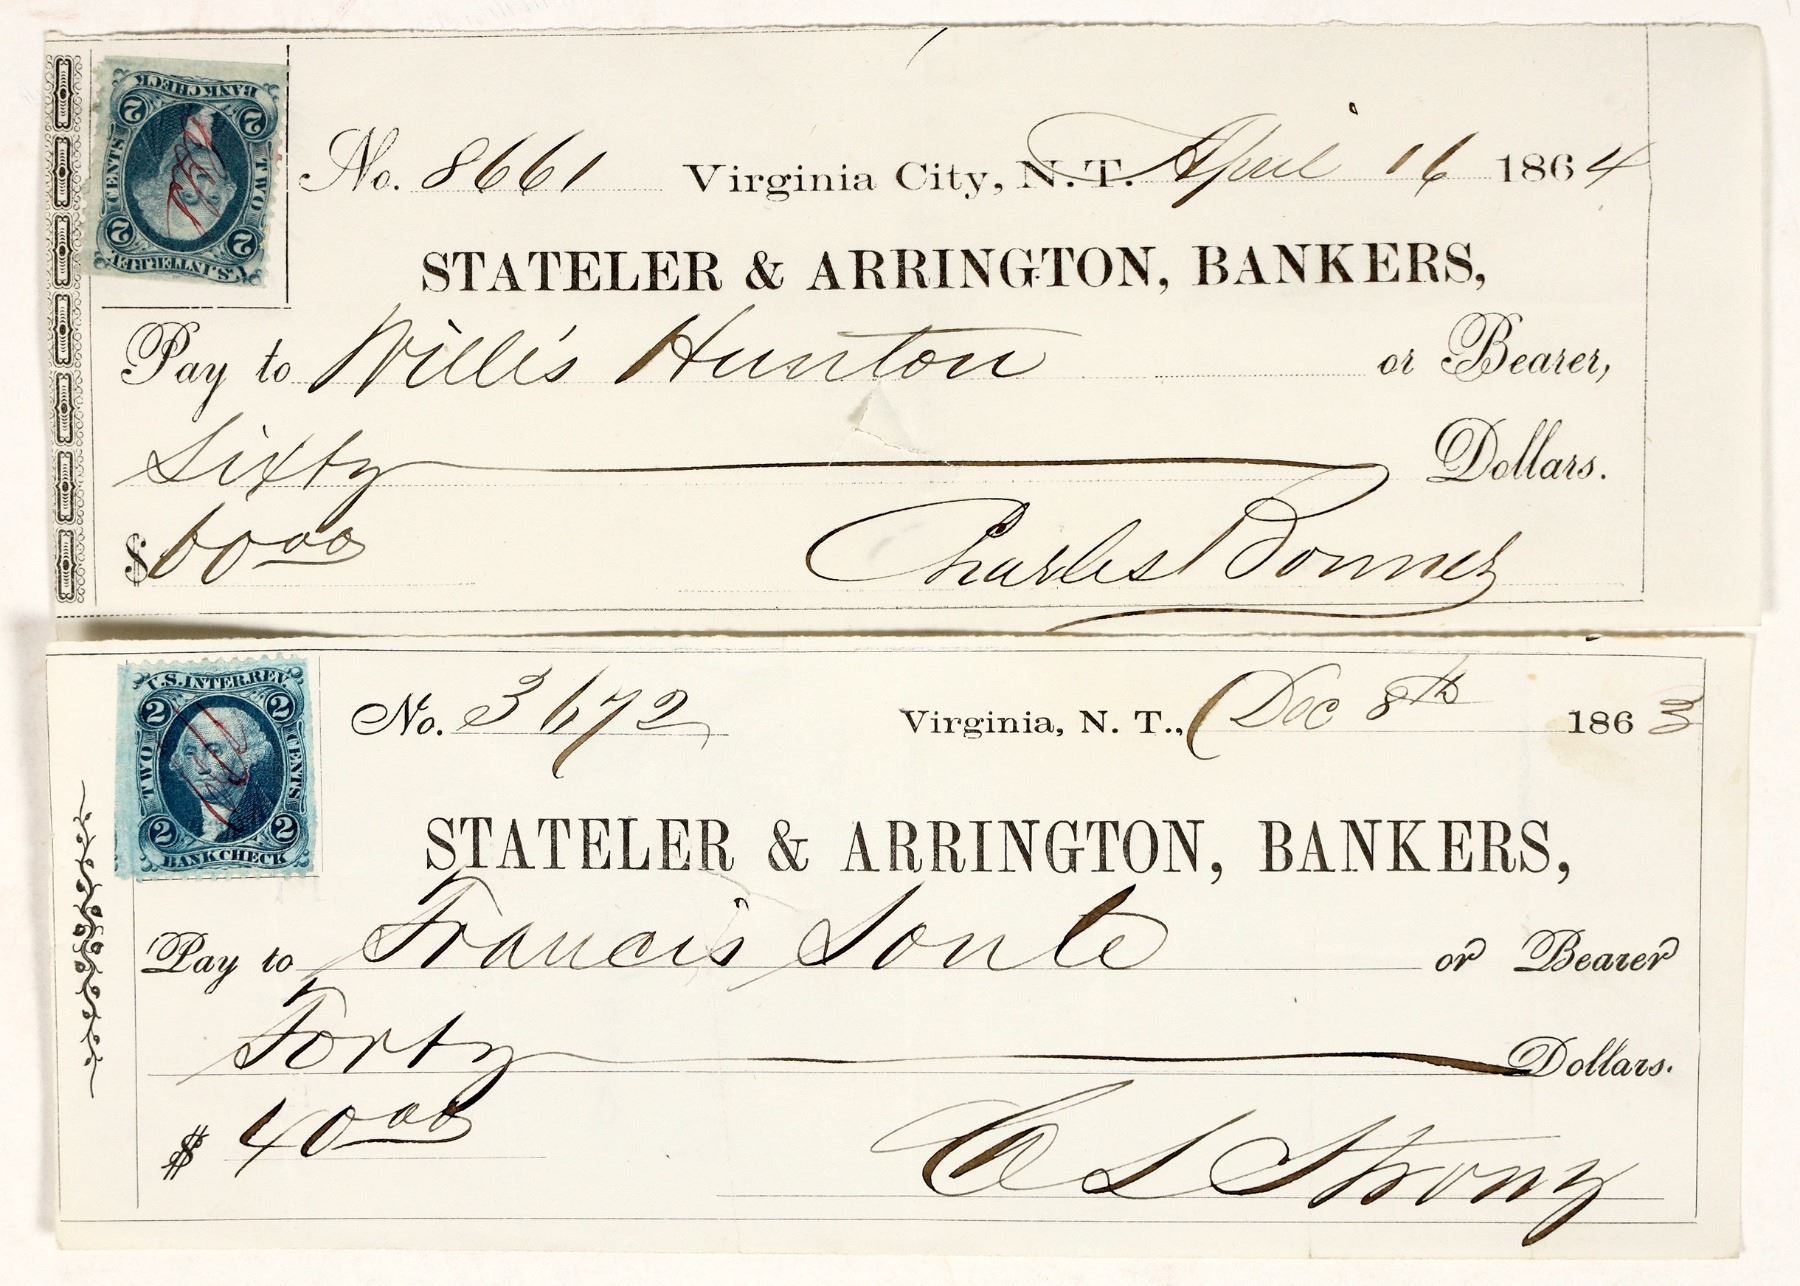 U.S. INTER. REV.
2 2
TWO CENTS
2 2
BANK CHECK
No. 8661 Virginia City, N. T. April 16 1864
STATELER & ARRINGTON, BANKERS,
Pay to Willis Hunton or Bearer,
Sixty Dollars.
$60.00
Charles Bonner
U.S. INTER. REV.
2 2
TWO CENTS
2 2
BANK CHECK
No. 3672 Virginia, N. T., Dec 8th 1863
STATELER & ARRINGTON, BANKERS,
Pay to Francis Soule or Bearer
Forty Dollars.
$ 40.00
C L Strong